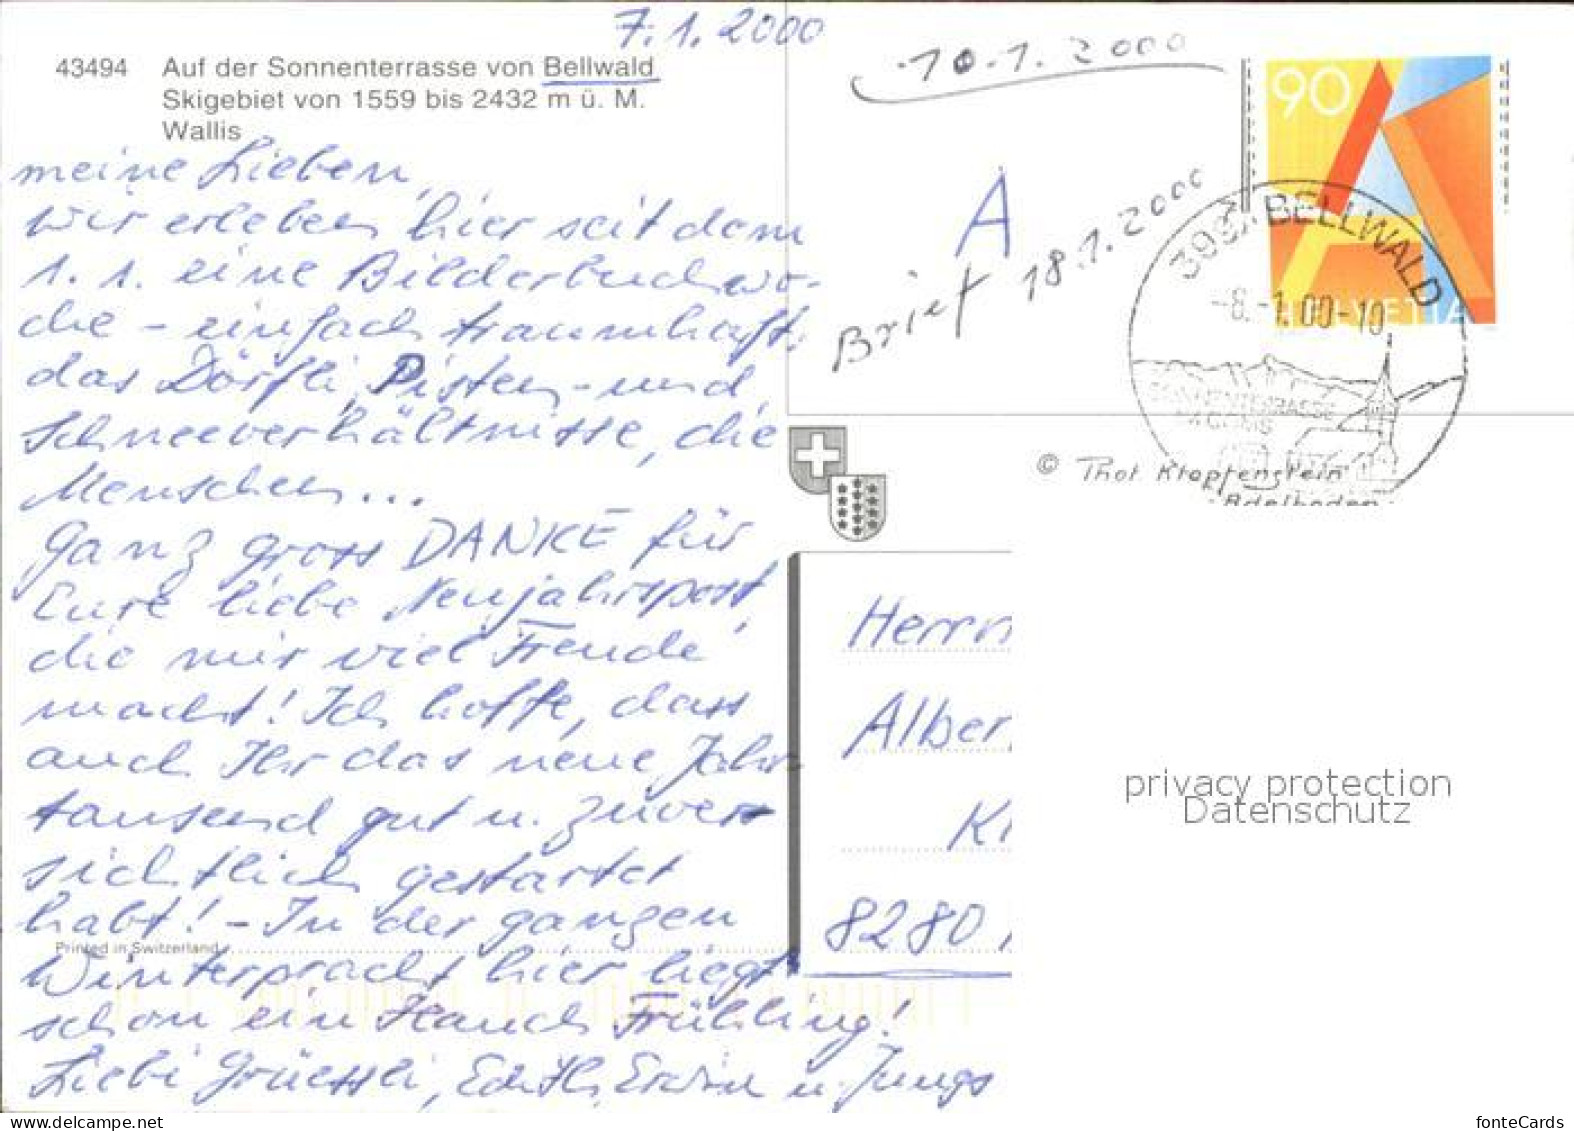 7.1.2000
43494 Auf der Sonnenterrasse von Bellwald
Skigebiet von 1559 bis 2432 m ü. M.
Wallis
meine Lieben,
wir erleben hier seit dem
1.1. eine Bilderbuchwo-
che - einfach traumhaft:
das Dörfli, Pisten- und
Schneeverhältnisse, die
Menschen...
Ganz gross DANKE für
Eure liebe Neujahrspost,
die mir viel Freude
macht! Ich hoffe, dass
auch Ihr das neue Jahr
tausend gut u. zuver-
sichtlich gestartet
habt! - In der ganzen
Printed in Switzerland
Winterpracht hier liegt
schon ein Hauch Frühling!
Liebi Grüessli, Edith, Erwin u. Jungs
10.1.2000
A
Brief 18.1.2000
90
HELVETIA
BELLWALD
-8.-1.00-10
SONNENTERRASSE
GOMS
© Phot. Klopfenstein
Adelboden
Herrn
Alber
K
8280
privacy protection
Datenschutz
www.delcampe.net
fonteCards